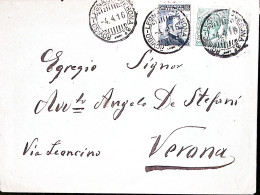 -4.4.16
Egregio Signor
Avv. Angelo De Stefani
Via Leoncino
Verona